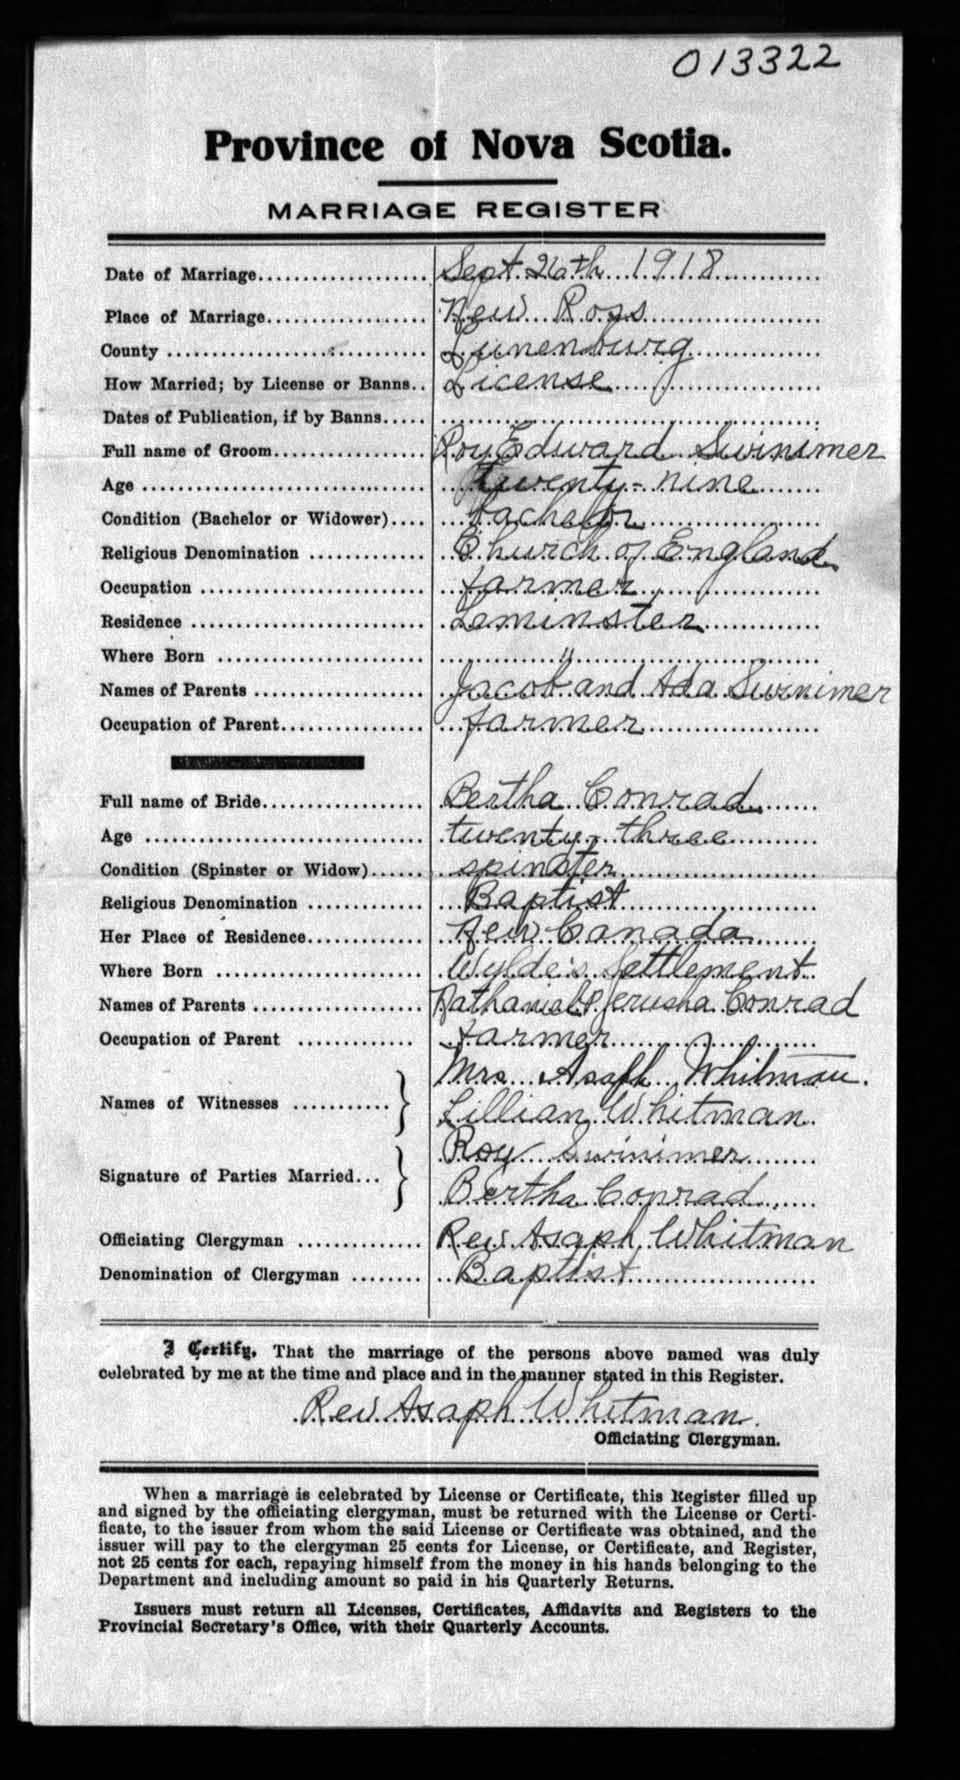 013322
Province of Nova Scotia.
MARRIAGE REGISTER
Date of Marriage.................. Sept 26th 1918
Place of Marriage.................. New Ross
County .......................... Lunenburg
How Married; by License or Banns.. License
Dates of Publication, if by Banns.....
Full name of Groom................ Roy Edward Swinimer
Age ............................. twenty-nine
Condition (Bachelor or Widower).... bachelor
Religious Denomination ............ Church of England
Occupation ....................... farmer
Residence ........................ Leminster
Where Born ..................... "
Names of Parents ................. Jacob and Ada Swinimer
Occupation of Parent............... farmer
Full name of Bride................. Bertha Conrad
Age ............................. twenty-three
Condition (Spinster or Widow)...... spinster
Religious Denomination ............ Baptist
Her Place of Residence............. New Canada
Where Born ..................... Wylde's Settlement
Names of Parents ................. Nathaniel & Jerusha Conrad
Occupation of Parent ............ farmer
Names of Witnesses ........... } Mrs Asaph Whitman.
Lillian Whitman.
Signature of Parties Married... } Roy Swinimer
Bertha Conrad
Officiating Clergyman ............. Rev Asaph Whitman
Denomination of Clergyman ........ Baptist
I Certify, That the marriage of the persons above named was duly
celebrated by me at the time and place and in the manner stated in this Register.
Rev Asaph Whitman.
Officiating Clergyman.
When a marriage is celebrated by License or Certificate, this Register filled up
and signed by the officiating clergyman, must be returned with the License or Certi-
ficate, to the issuer from whom the said License or Certificate was obtained, and the
issuer will pay to the clergyman 25 cents for License, or Certificate, and Register,
not 25 cents for each, repaying himself from the money in his hands belonging to the
Department and including amount so paid in his Quarterly Returns.
Issuers must return all Licenses, Certificates, Affidavits and Registers to the
Provincial Secretary's Office, with their Quarterly Accounts.